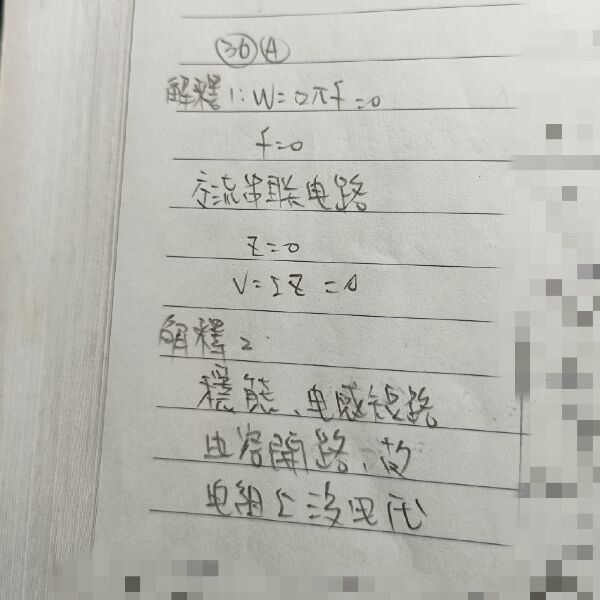 36 A
解釋1:W=2πf=0
f=0
交流串联电路
Z=0
V=IZ=0
解釋2
穩態、电感短路
电容開路、故
电阻上沒电压